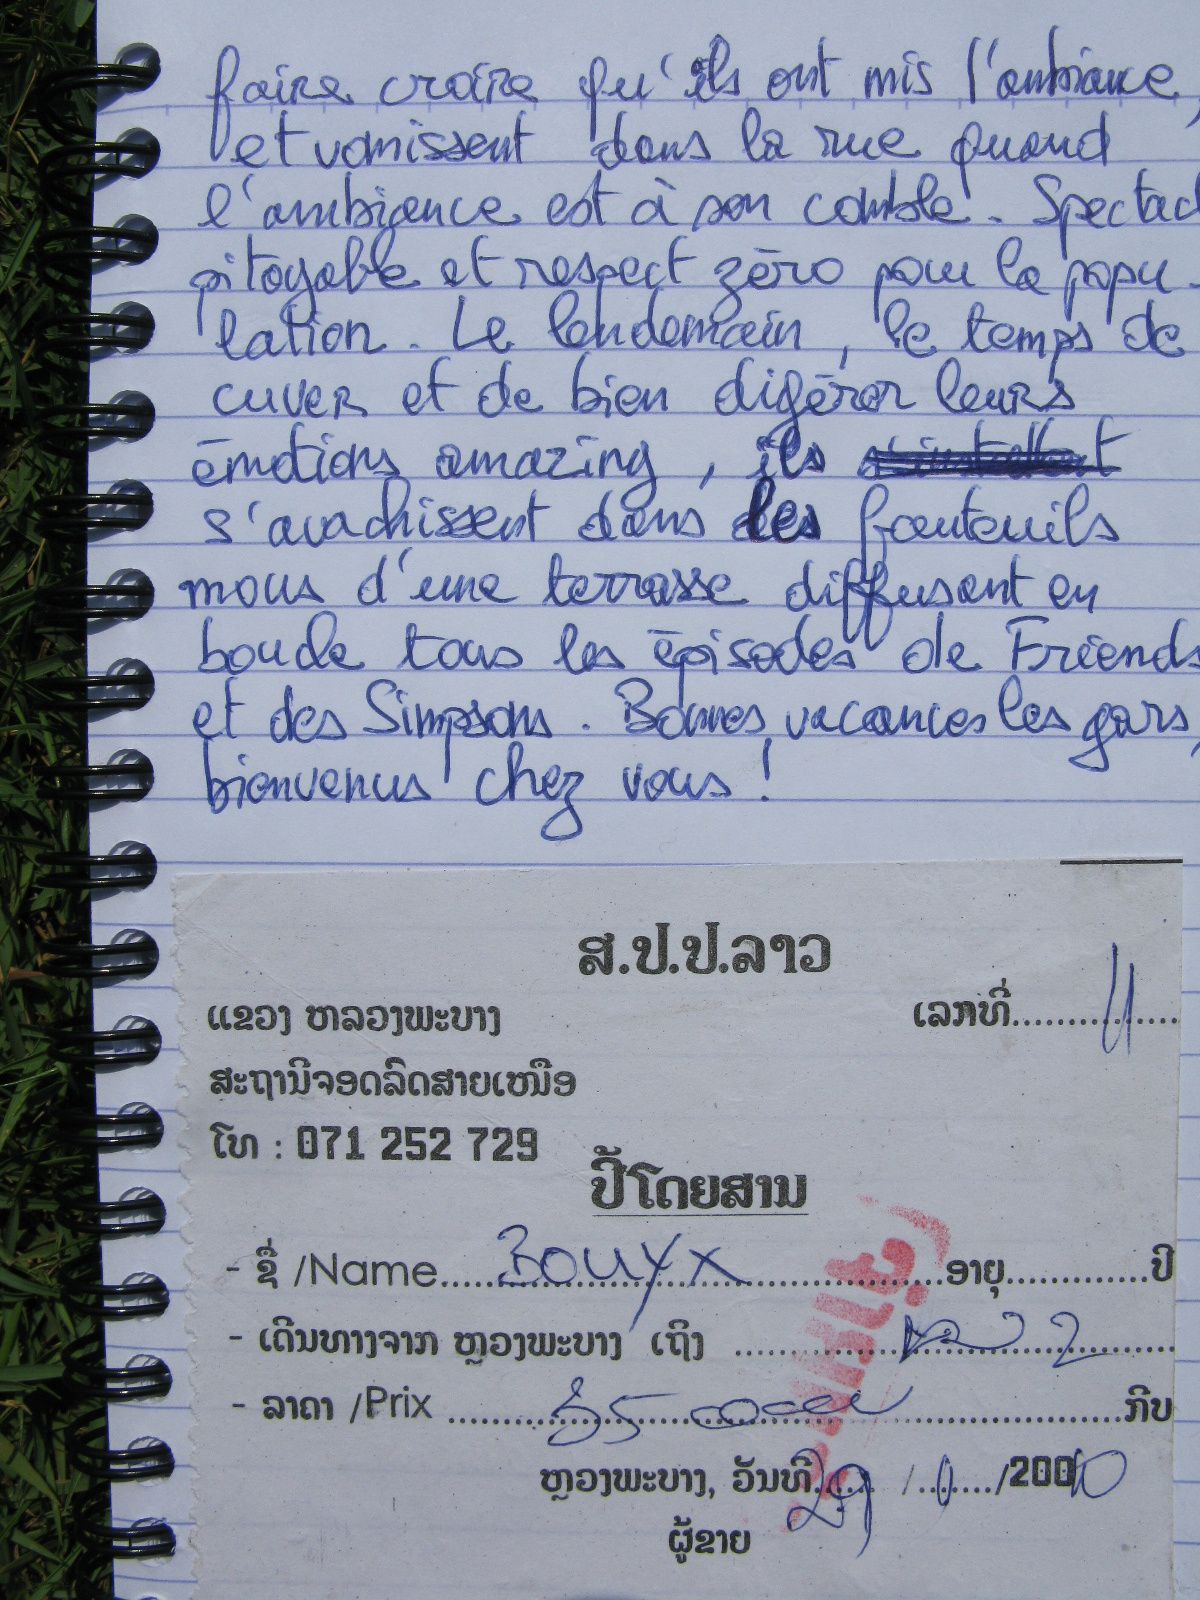 faire croire qu'ils ont mis l'ambiance,
et vomissent dans la rue quand
l'ambiance est à son comble. Spectac
pitoyable et respect zéro pour la popu-
lation. Le lendemain, le temps de
cuver et de bien digérer leurs
émotions amazing, ils
s'avachissent dans les fauteuils
mous d'une terrasse diffusant en
boucle tous les épisodes de Friends
et des Simpsons. Bonnes vacances les gars,
bienvenus chez vous !
ສ.ປ.ປ.ລາວ
ແຂວງ ຫລວງພະບາງ ເລກທີ່............... 11
ສະຖານີຈອດລົດສາຍເໜືອ
ໂທ : 071 252 729
ປີ້ໂດຍສານ
- ຊື່ /Name..... BOUYX .....ອາຍຸ.............ປີ
- ເດີນທາງຈາກ ຫຼວງພະບາງ ເຖິງ ..........
- ລາຄາ /Prix ..... ກີບ
ຫຼວງພະບາງ, ວັນທີ 29 / 1 /20010
ຜູ້ຂາຍ